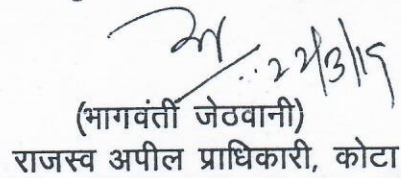 22/3/19
(भागवंती जेठवानी)
राजस्व अपील प्राधिकारी, कोटा